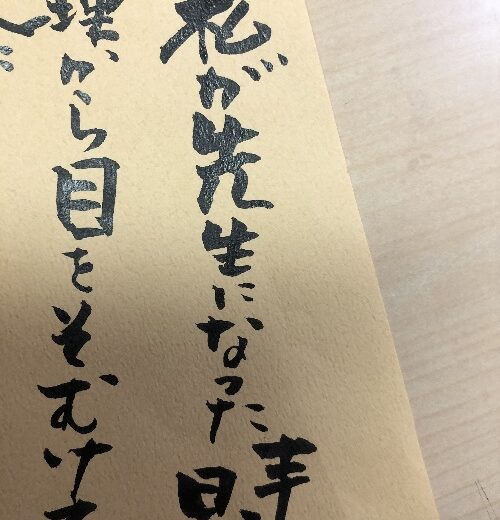 私が先生になった時
理から目をそむけて